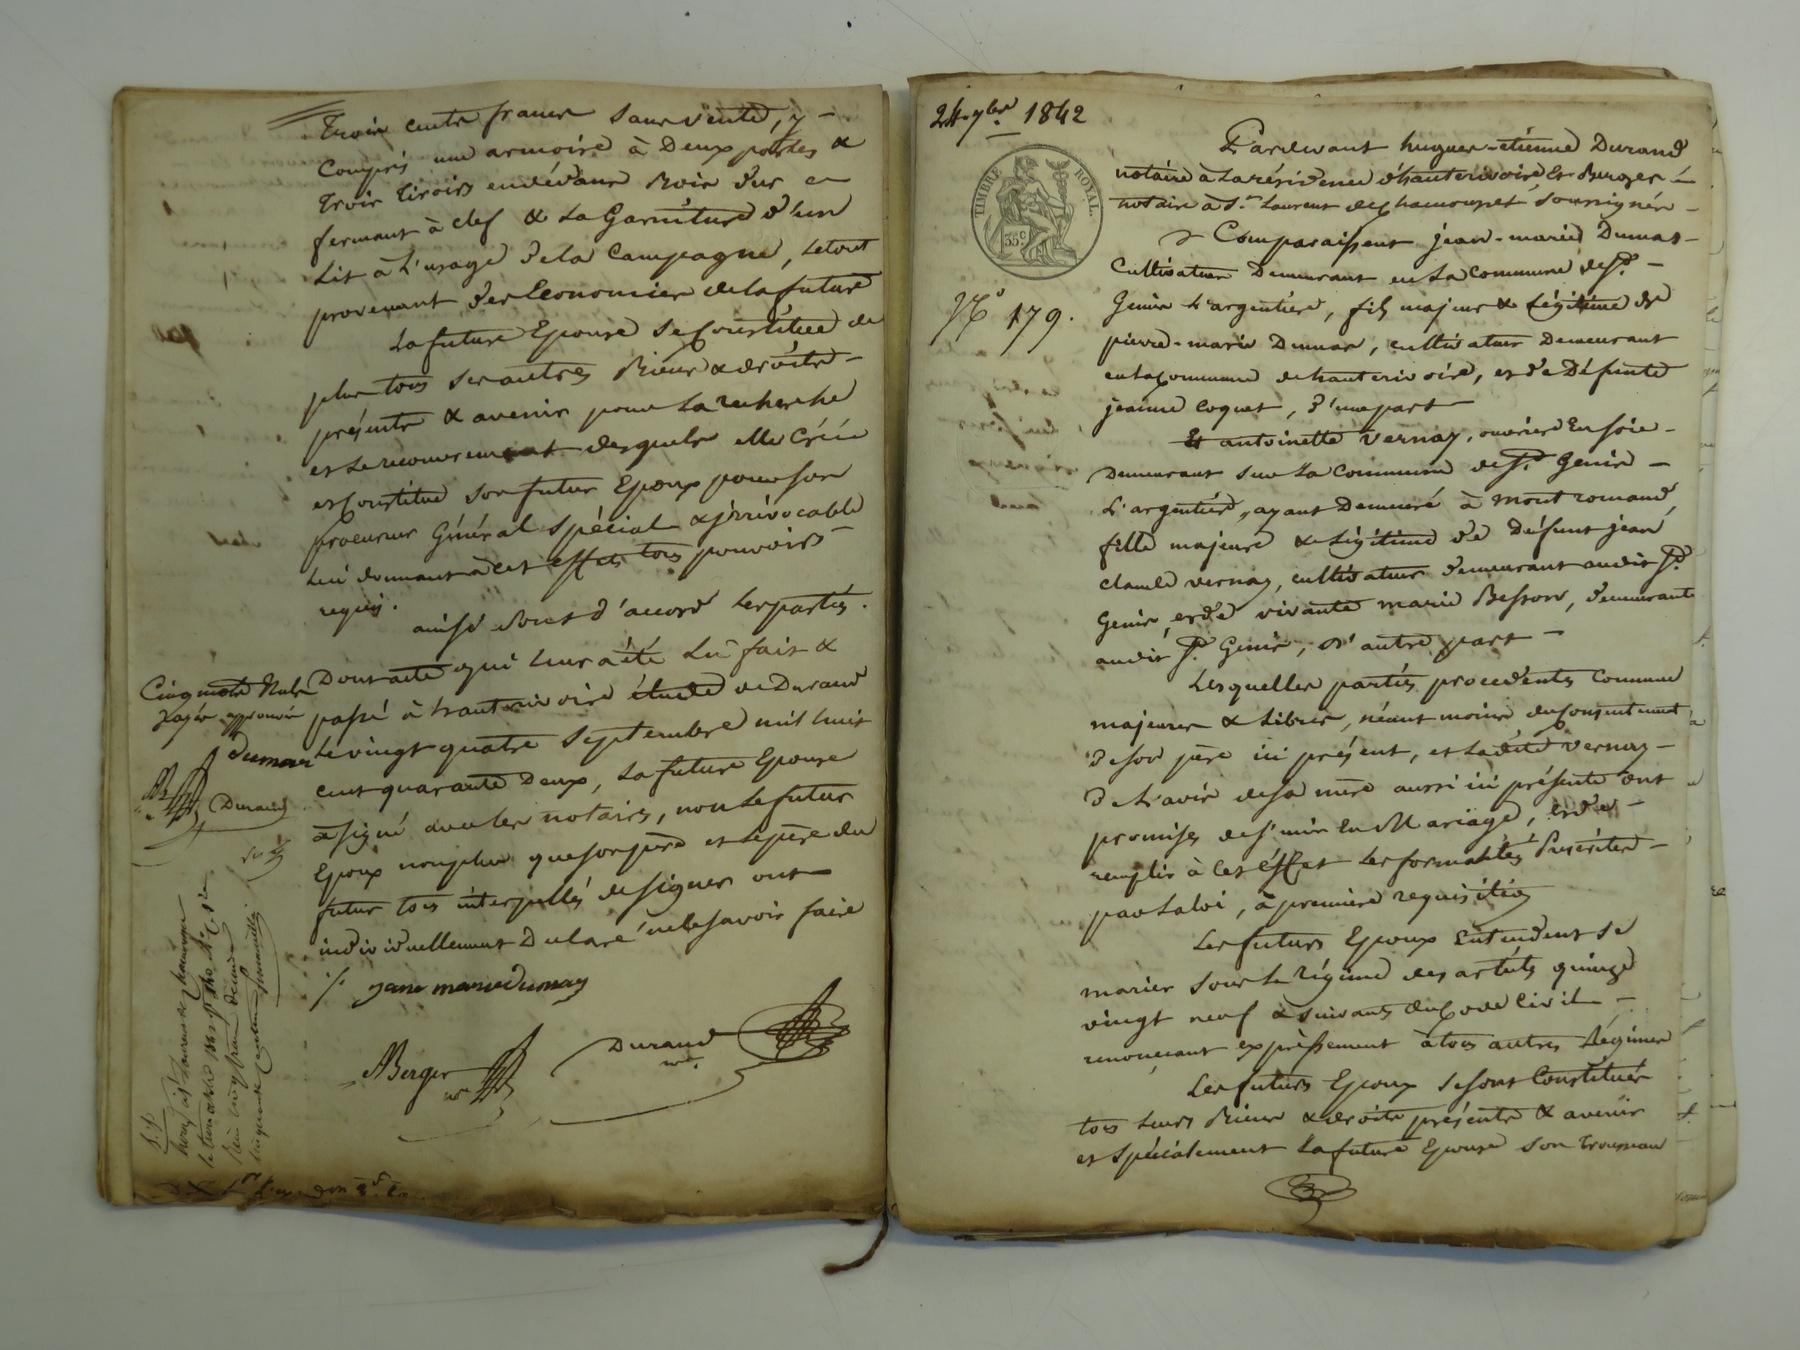 Trois cents francs sans vente, y -
Compris une armoire à Deux portes &
trois tiroirs en dedans Bois dur en
fermant à clef & La Garniture d'un
Lit à L'usage de la Campagne, le tout
provenant des Economies de la future
La future Epouse se Constitue de
plus tous ses autres Biens & droits -
présents & avenir pour La recherche
et Le recouvrement desquels elle Créé
et Constitue son futur Epoux pour son
procureur Général Spécial & irrévocable
Lui donnant à cet effet tous pouvoirs -
requis.
ainsi sont d'accord Les parties.
Dont acte qui leur a été Lu fait &
passé à hauterivoire étude de Durand
Le vingt quatre Septembre mil huit
cent quarante Deux, La future Epouse
a signé avec les notaires, non Le futur
Epoux non plus que son père et Le père du
futur tous interpellés de signer ont
individuellement Déclaré ne le savoir faire
./. jane marie dumas
ABerger
nre
Durand
nre.
Cinq mots Nuls
Rayés approuvés
dumas
Durand
24. 7bre 1842
TIMBRE ROYAL.
35c
No 179.
Pardevant hugues-étienne Durand
notaire à La résidence d'hauterivoire Et Berger -
notaire à St. Laurent de Chamousset soussignés -
Comparaissent jean-marie Dumas -
Cultivateur Demeurant en La Commune de St. -
Genis L'argentière, fils majeur & Légitime de
pierre-marie Dumas, cultivateur Demeurant
en la Commune de hauterivoire, et de Défunte
jeanne Coquet, d'une part -
Et antoinette Vernay, ouvrière En soie -
Demeurant sur La Commune de St. Genis -
L'argentière, ayant Demeuré à montromand,
fille majeure & Légitime de Défunt jean
claude vernay, cultivateur demeurant audit St.
Genis, et de vivante marie Besson, demeurante
audit St. Genis, d'autre part -
Lesquelles parties procédentes Comme
majeures & Libres, néant moins du Consentement
de son père ici présent, et La dite vernay -
de L'avis de sa mère aussi ici présente ont
promises de s'unir En Mariage, et de -
remplir à cet éffet Les formalités Prescrites -
par La loi, à première requisition
Les futurs Epoux Entendent se
marier sous Le régime des articles quinze
vingt neuf & suivants du Code Civil -
renoncant expréssement à tous autres Régimes
Les futurs Epoux se sont Constitués
tous Leurs Biens & droits présents & avenir
et Spécialement La future Epouse son Trousseau